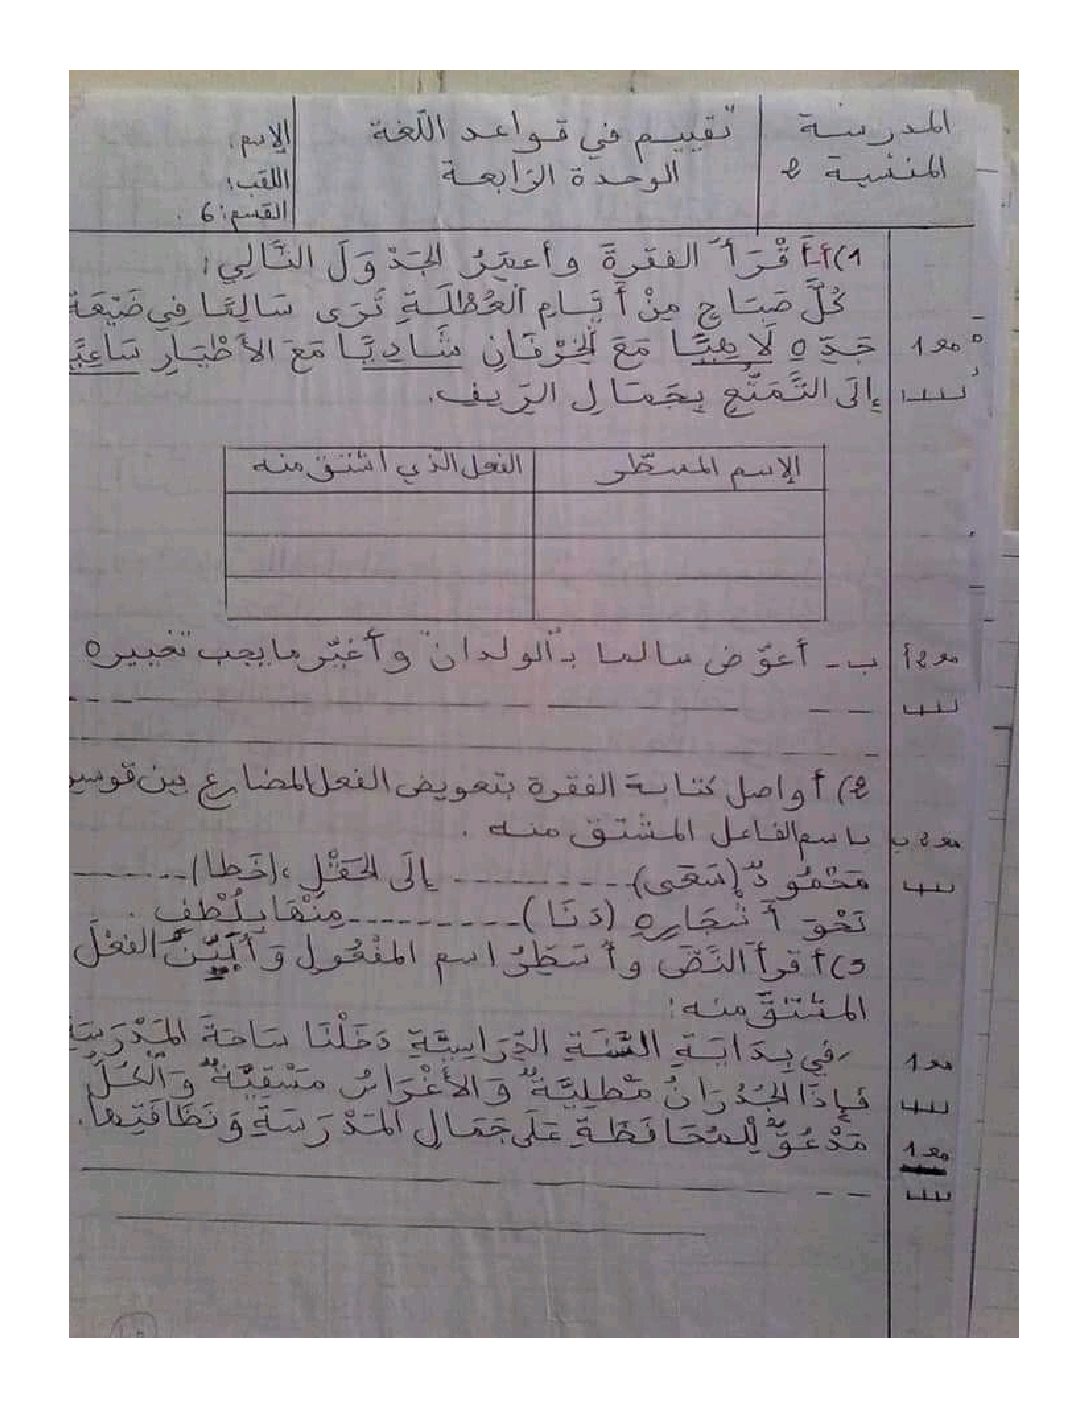 المدرسة
المنشية 2
تقييم في قواعد اللّغة
الوحدة الرّابعة
الإسم:
اللقب:
القسم: 6
1) أ ـ أَقْرَأُ الفقرةَ و أعمِّرُ الجَدْوَلَ التَّالِي:
كُلَّ صَبَاحٍ مِنْ أَيَّامِ العُطْلَةِ تَرَى سَالِمًا فِي ضَيْعَةِ
جَدِّهِ لَاهِيًا مَعَ الخِرْفَانِ شَادِيًا مَعَ الأَطْيَارِ سَاعِيًا
إِلَى التَّمَتُّعِ بِجَمَالِ الرِّيفِ.
مع 1
الإسم المسطّر
الفعل الذي اشتق منه
مع 2 أ
ب ـ أعوّض سالما بـ "الولدان" و أغيّر ما يجب تغييره
2) أواصل كتابة الفقرة بتعويض الفعل المضارع بين قوسين
مع 2 ب
باسم الفاعل المشتق منه.
مَحْمُودٌ (سَعَى) --------- إِلَى الحَقْلِ، (خَطَا) -------
نَحْوَ أَشْجَارِهِ (دَنَا) --------- مِنْهَا بِلُطْفٍ.
3) أقرأ النَّصَّ و أُسَطِّرُ اسم المفْعُولِ وَ أُبَيِّنُ الفعْلَ
المشتقَّ منه:
في بِدَايَةِ السَّنَةِ الدِّرَاسِيَّةِ دَخَلْنَا سَاحَةَ المَدْرَسَةِ
مع 1
فَإِذَا الجُدْرَانُ مَطْلِيَّةٌ وَ الأَغْرَاسُ مَسْقِيَّةٌ وَ الكُلُّ
مَدْعُوٌّ لِلْمُحَافَظَةِ عَلَى جَمَالِ المَدْرَسَةِ وَ نَظَافَتِهَا.
مع 1